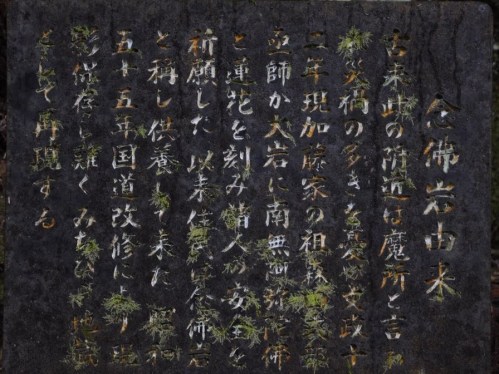 念佛岩由来
古来此の附近は魔所と言
災禍の多きを憂い文政十
二年現加藤家の祖
師が大岩に南無阿弥陀佛
と蓮花を刻み諸人の安全を
祈願した以来住民は念佛岩
と稱し供養して来た昭和
五十五年国道改修により
影保存し難くみちびき地蔵
として再現する